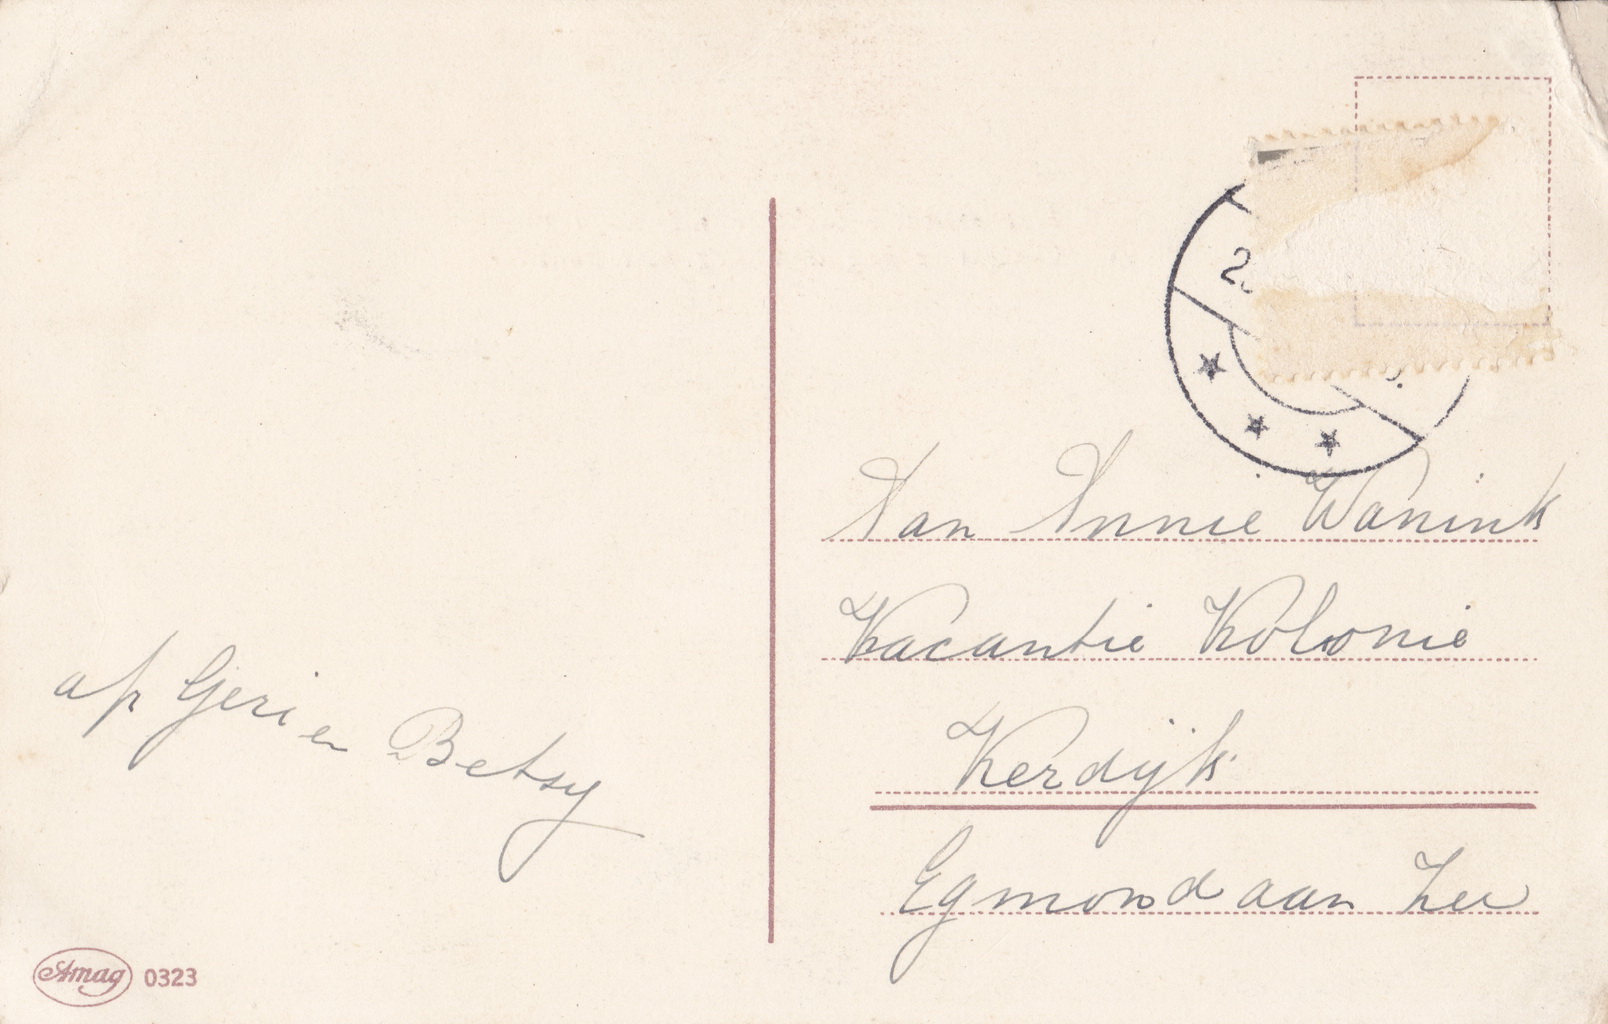 2
Aan Annie Wanink
Vacantie Kolonie
Kerdijk
Egmond aan Zee
afz Geri en Betsy
Amag 0323